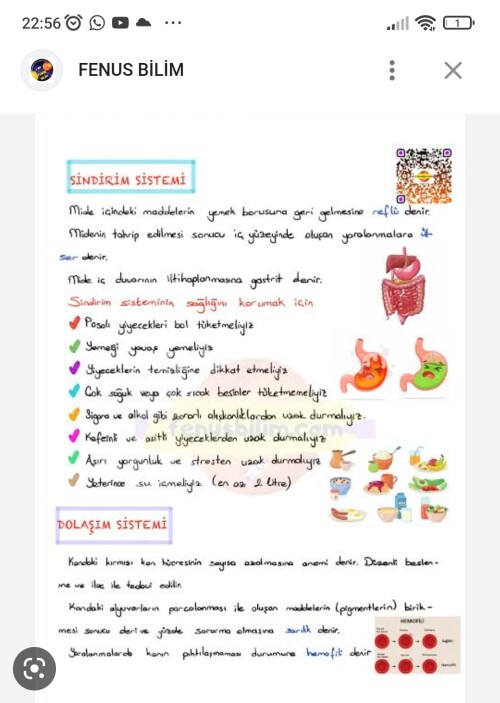 22:56
1
FENUS BİLİM
SİNDİRİM SİSTEMİ
Mide içindeki maddelerin yemek borusuna geri gelmesine reflü denir.
Midenin tahrip edilmesi sonucu iç yüzeyinde oluşan yaralanmalara ül-
ser denir.
Mide iç duvarının iltihaplanmasına gastrit denir.
Sindirim sisteminin sağlığını korumak için
Posalı yiyecekleri bol tüketmeliyiz
Yemeği yavaş yemeliyiz
Yiyeceklerin temizliğine dikkat etmeliyiz
Çok soğuk veya çok sıcak besinler tüketmemeliyiz
Sigara ve alkol gibi zararlı alışkanlıklardan uzak durmalıyız.
Kafeinli ve asitli yiyeceklerden uzak durmalıyız
fenusbilim.com
Aşırı yorgunluk ve stresten uzak durmalıyız
Yeterince su içmeliyiz (en az 2 litre)
DOLAŞIM SİSTEMİ
Kandaki kırmızı kan hücresinin sayısı azalmasına anemi denir. Düzenli beslen-
me ve ilaç ile tedavi edilir.
Kandaki alyuvarların parçalanması ile oluşan maddelerin (pigmentlerin) birik-
mesi sonucu deri ve yüzde sararma olmasına sarılık denir.
HEMOFİLİ
Yaralanmalarda kanın pıhtılaşmaması durumuna hemofili denir